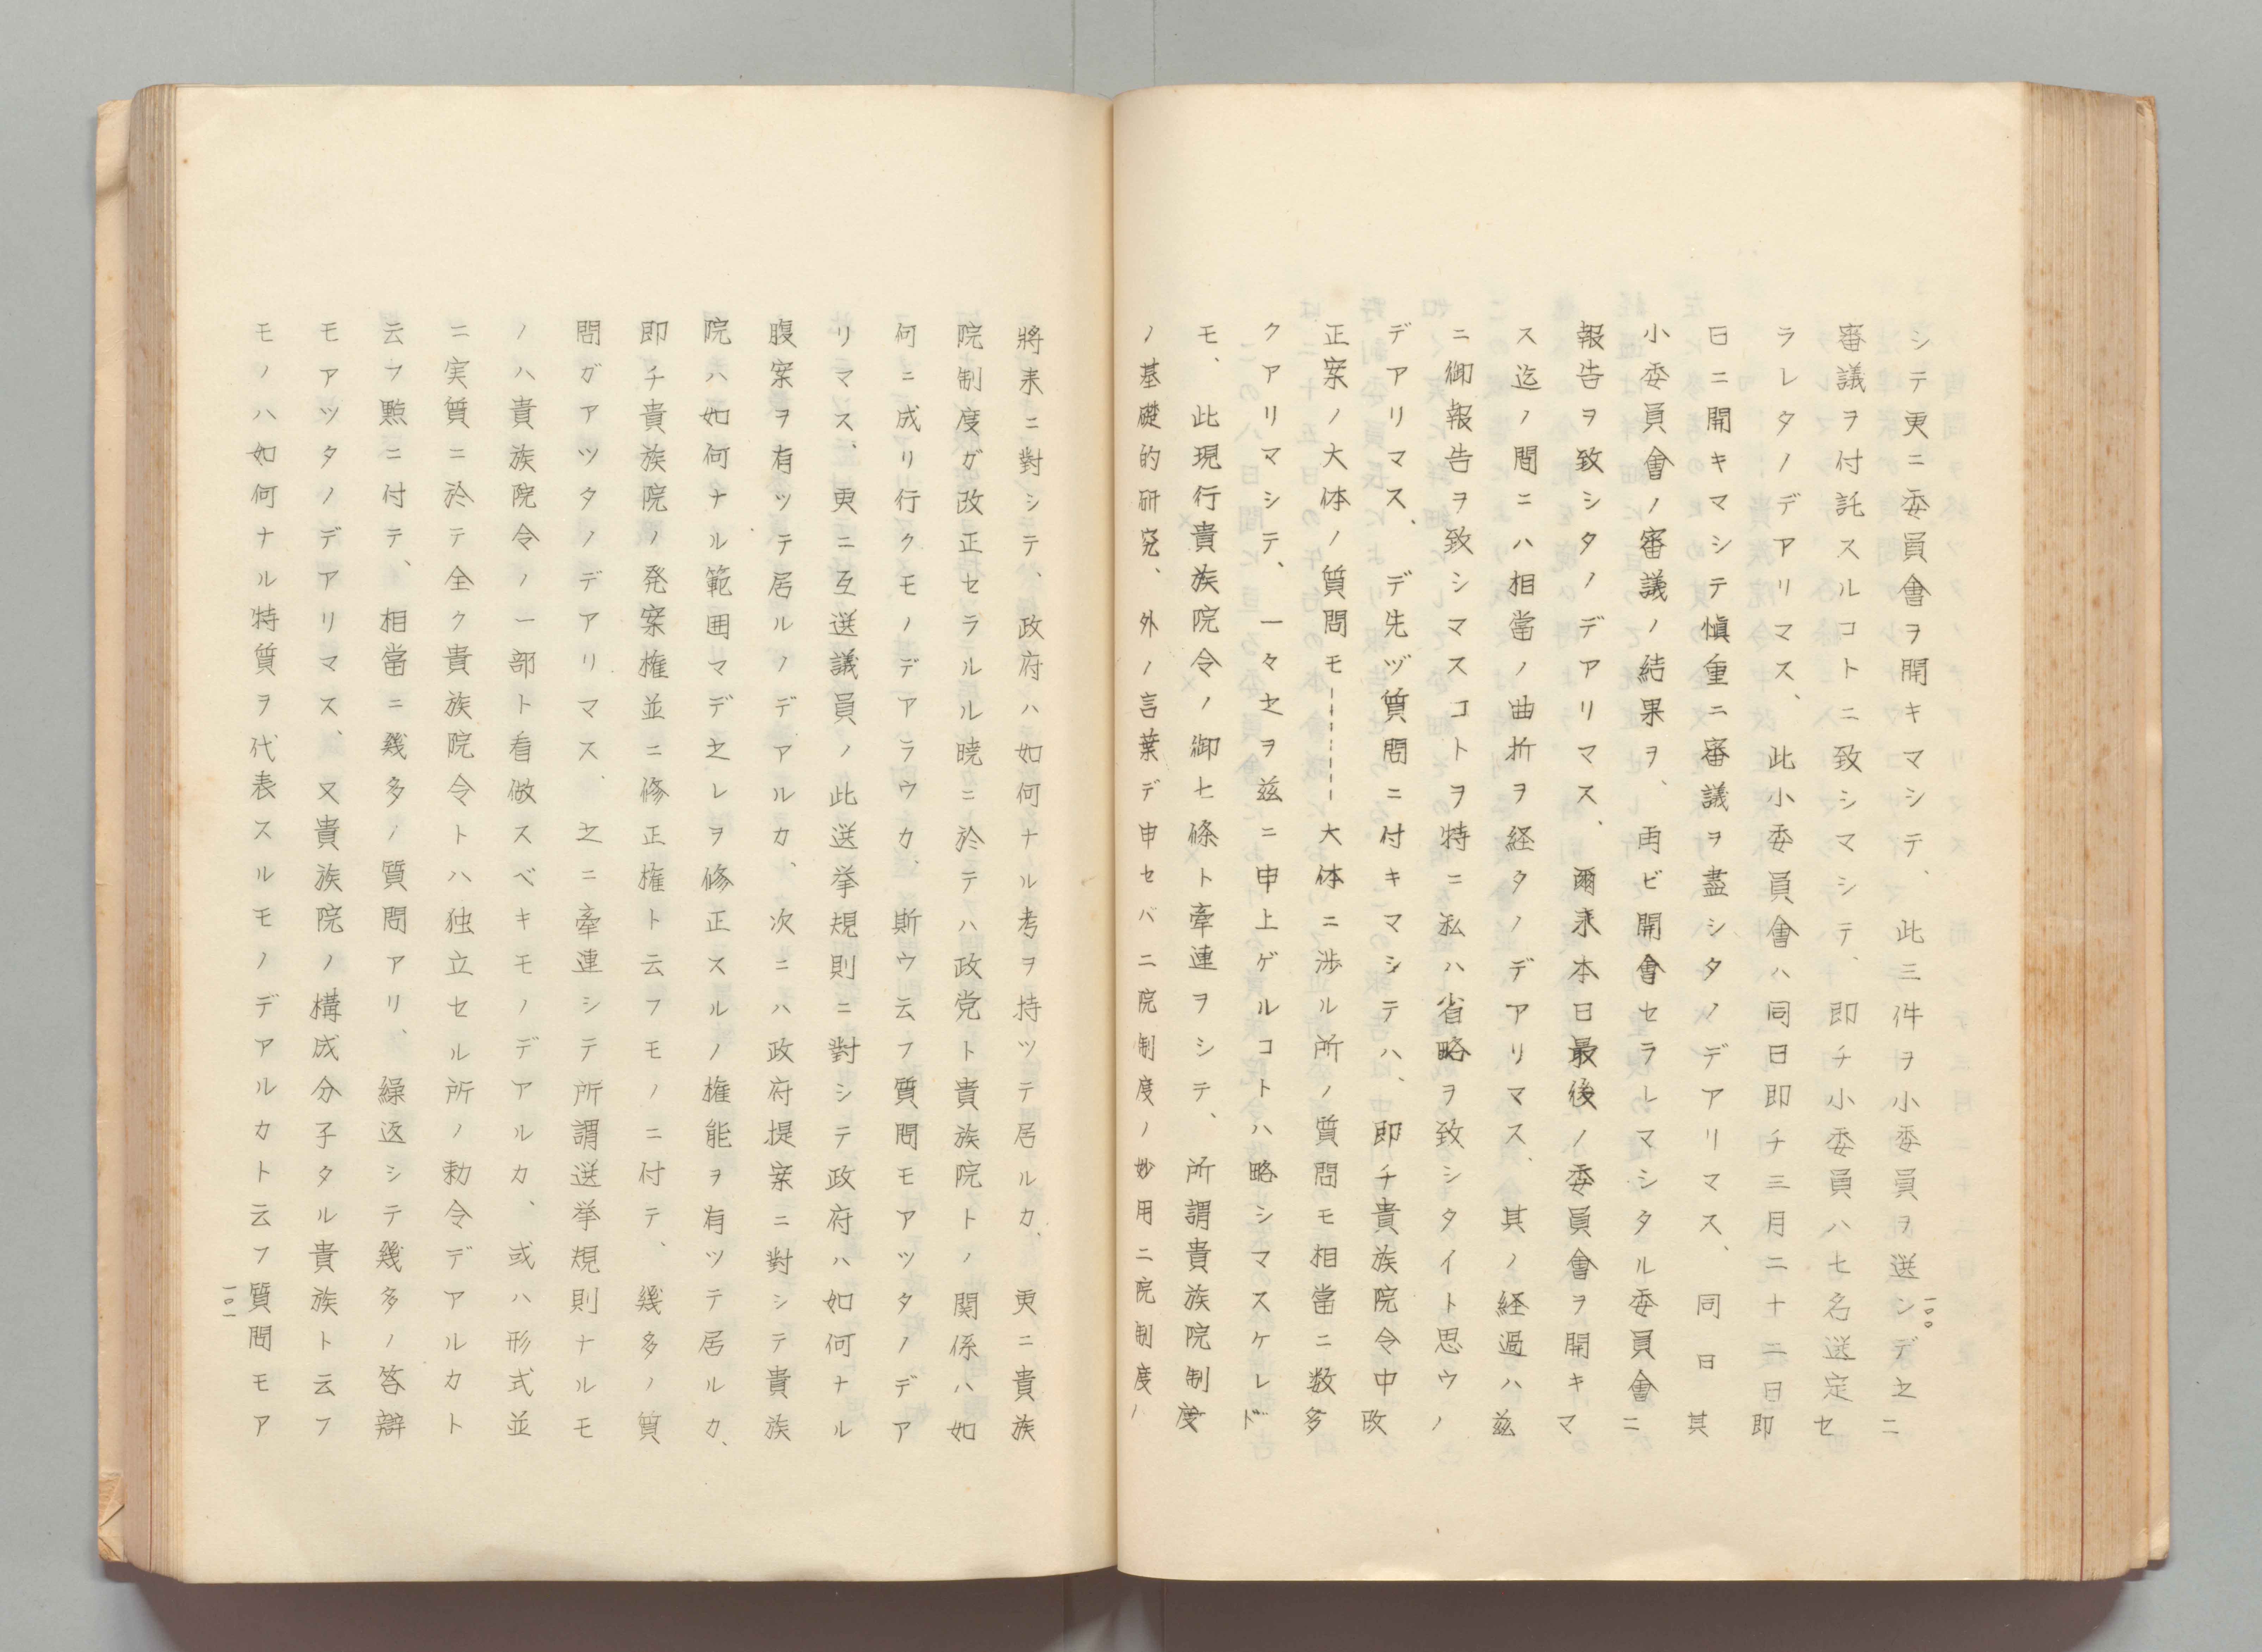 シテ更ニ委員會ヲ開キマシテ、此三件ヲ小委員ヲ選ンデ之ニ
審議ヲ付託スルコトニ致シマシテ、即チ小委員ハ七名選定セ
ラレタノデアリマス、此小委員會ハ同日即チ三月二十二日即
日ニ開キマシテ愼重ニ審議ヲ盡シタノデアリマス、同日其
小委員會ノ審議ノ結果ヲ、再ビ開會セラレマシタル委員會ニ
報告ヲ致シタノデアリマス、爾来本日最後ノ委員會ヲ開キマ
ス迄ノ間ニハ相當ノ曲折ヲ経タノデアリマス、其ノ経過ハ茲
ニ御報告ヲ致シマスコトヲ特ニ私ハ省略ヲ致シタイト思ウノ
デアリマス、デ先ヅ質問ニ付キマシテハ、即チ貴族院令中改
正案ノ大体ノ質問モ------大体ニ渉ル所ノ質問モ相當ニ数多
クアリマシテ、一々之ヲ茲ニ申上ゲルコトハ略シマスケレド
モ、此現行貴族院令ノ御七條ト牽連ヲシテ、所謂貴族院制度
ノ基礎的研究、外ノ言葉デ申セバ二院制度ノ妙用二院制度ノ
一〇〇
將来ニ對シテ、政府ハ如何ナル考ヲ持ツテ居ルカ、更ニ貴族
院制度ガ改正セラルル暁ニ於テハ政党ト貴族院トノ関係ハ如
何ニ成リ行クモノデアラウカ、斯ウ云フ質問モアツタノデア
リマス、更ニ互選議員ノ此選挙規則ニ對シテ政府ハ如何ナル
腹案ヲ有ツテ居ルノデアルカ、次ニハ政府提案ニ對シテ貴族
院ハ如何ナル範囲マデ之レヲ修正スルノ権能ヲ有ツテ居ルカ、
即チ貴族院ノ発案権並ニ修正権ト云フモノニ付テ、幾多ノ質
問ガアツタノデアリマス、之ニ牽連シテ所謂選挙規則ナルモ
ノハ貴族院令ノ一部ト看做スベキモノデアルカ、或ハ形式並
ニ実質ニ於テ全ク貴族院令トハ独立セル所ノ勅令デアルカト
云フ點ニ付テ、相當ニ幾多ノ質問アリ、繰返シテ幾多ノ答辯
モアツタノデアリマス、又貴族院ノ構成分子タル貴族ト云フ
モノハ如何ナル特質ヲ代表スルモノデアルカト云フ質問モア
一〇一